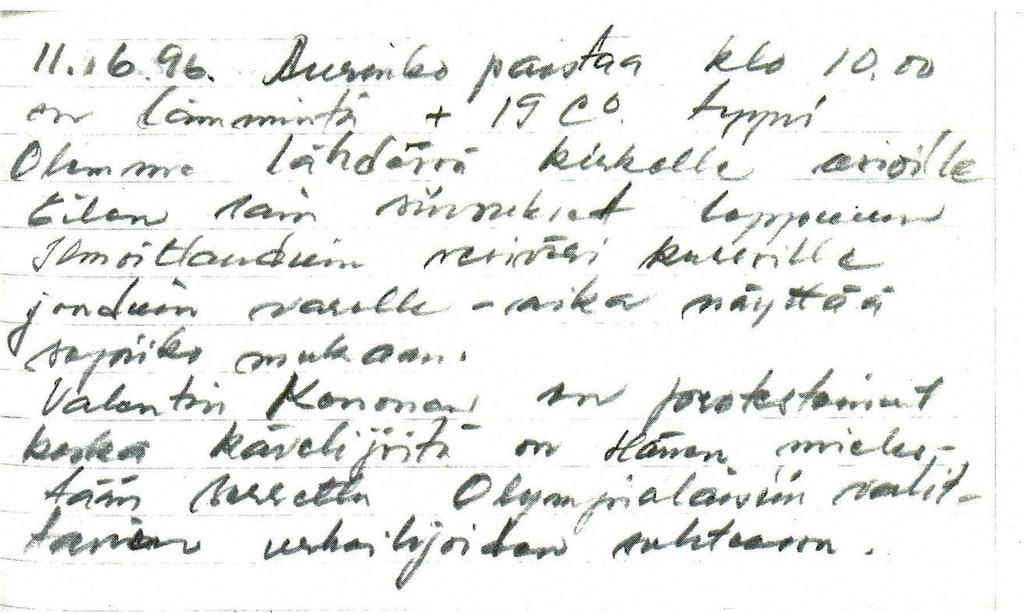 11.6.96. Aurinko paistaa klo 10.00
on lämmintä + 19 C°. tyyni
Olemme lähdössä kirkolle asioille
Eilen sain siivoukset loppuun
Ilmoittauduin kurssille
jonduin varalle - aika näyttää
sopiiko mukaan.
Valentin Kononen on protestoinut
koska kävelijöitä on Hänen mieles-
tään sorrettu Olympialaisiin valit-
tavien urheilijoiden suhteessa.